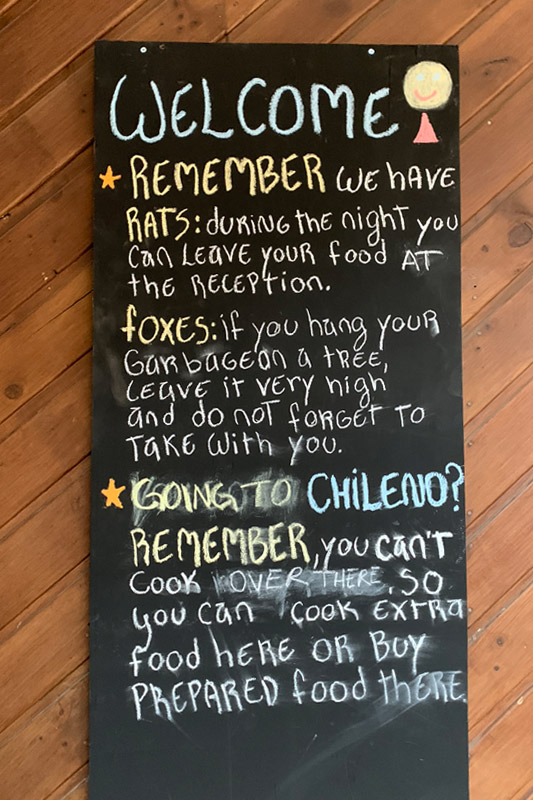 WELCOME
REMEMBER WE HAVE
RATS: DURING THE NIGHT YOU
CAN LEAVE YOUR FOOD AT
THE RECEPTION.
FOXES: IF YOU HANG YOUR
GARBAGE ON A TREE,
LEAVE IT VERY HIGH
AND DO NOT FORGET TO
TAKE WITH YOU.
GOING TO CHILENO?
REMEMBER, YOU CAN'T
COOK OVER THERE. SO
YOU CAN COOK EXTRA
FOOD HERE OR BUY
PREPARED FOOD THERE.